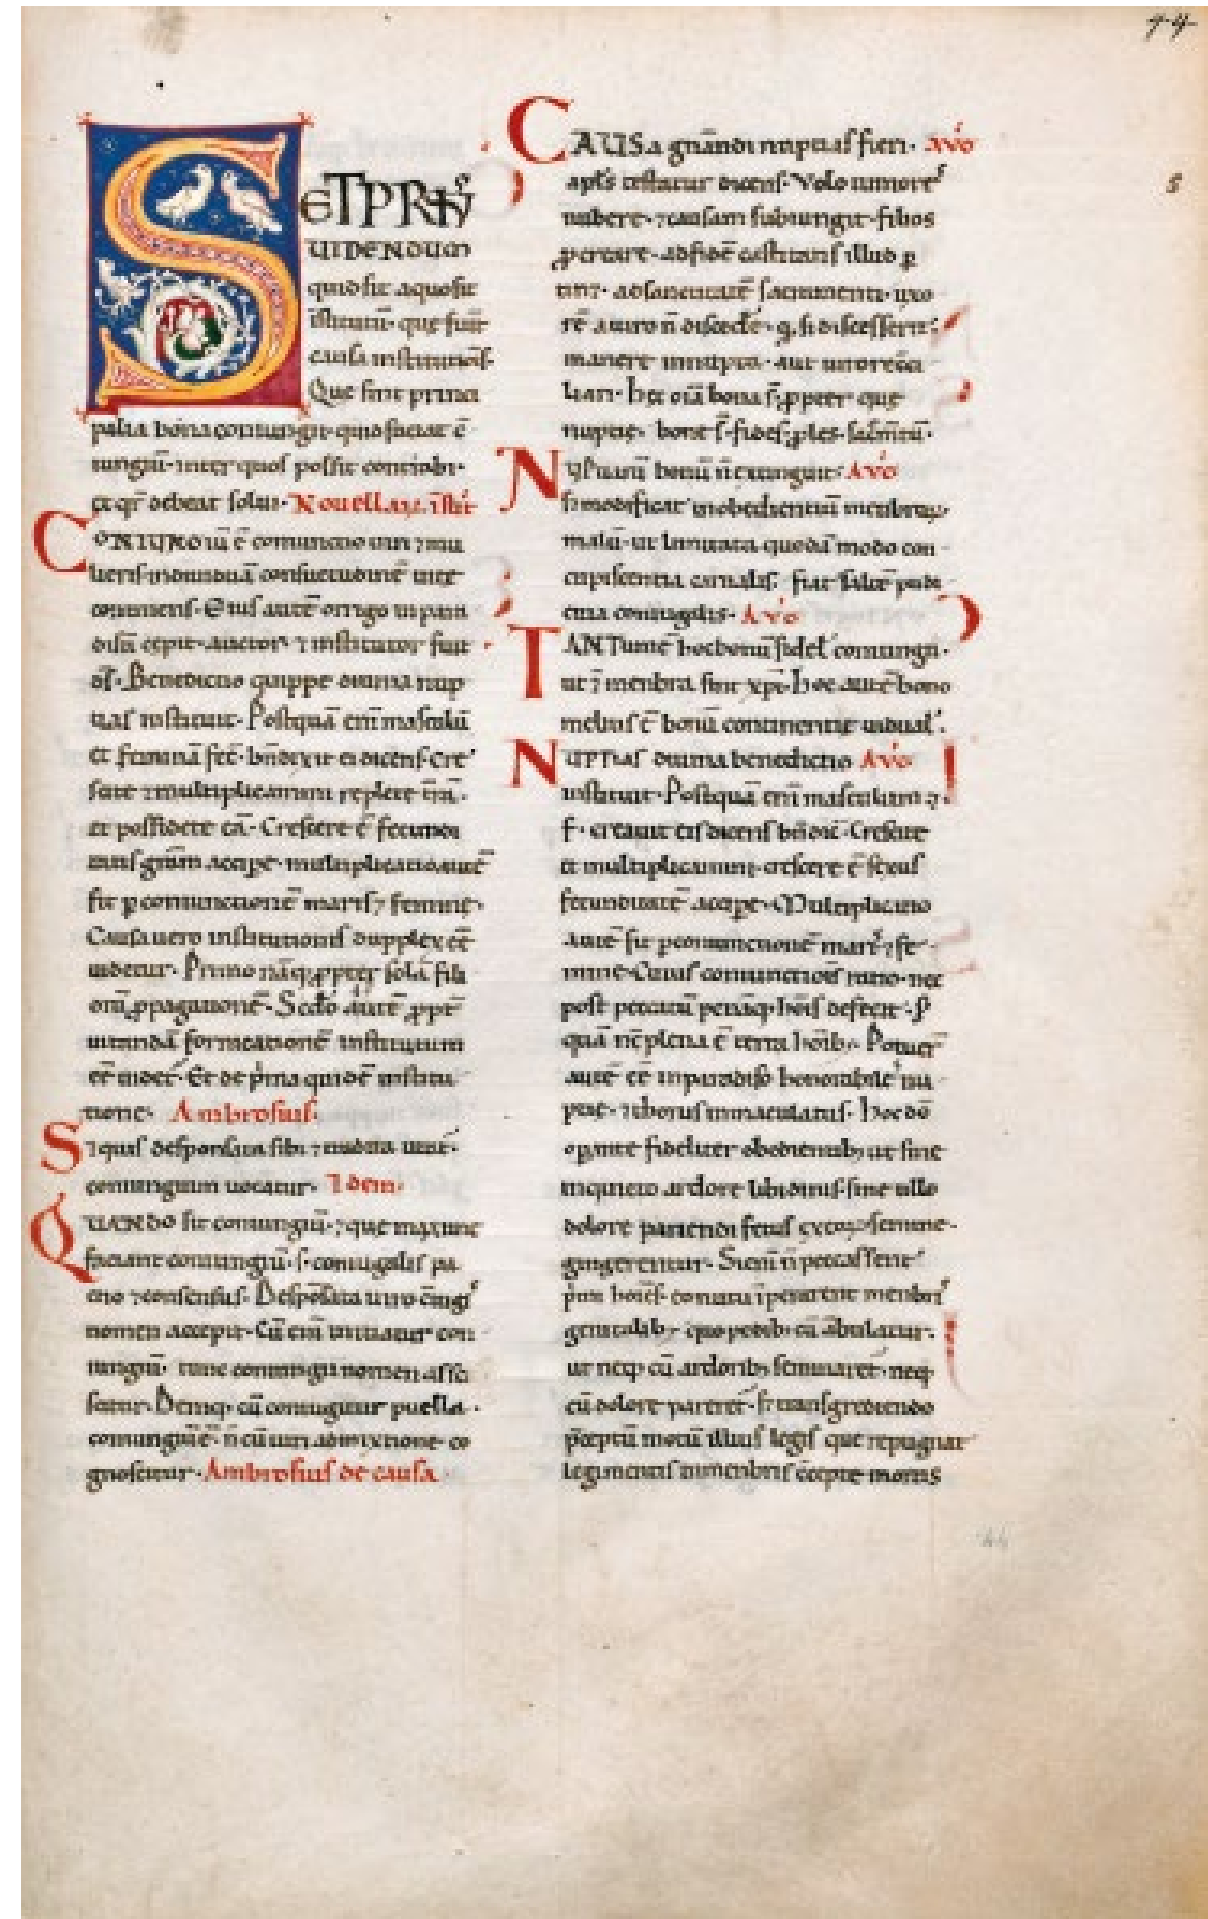 SET PRIVS
UIDENDUM
quid sit a quo sit
īstitutū· que fuit
causa institutiōis·
Que sint princi
palia bona coniungii· quid faciat cō
iungiū· inter quos possit contrahi·
Nouellaꝝ. īstit
CONIUNGIŪ ē coniunctio uiri ⁊ mu
lieris indiuiduā consuetudinē uite
continens· Eius autē origo in para
diso cepit· auctor ⁊ institutor fuit
dſ̄. Benedictio quippe diuina nup
tias instituit· Postquā enī masculū
et feminā fec̄· bn̄dixit eis dicens· Cre
scite ⁊ multiplicamini replete t̄rā·
et possidete eā· Crescere ē fecundi
tatis· accipe· multiplicatio autē
fit ꝑ coniunctionē maris ⁊ femine·
Causa uero institutionis dupplex cē
uidetur· Primo nāq; ꝓpter solā filı
orū ꝓpagationē· Scd̄o autē ꝓpt̄
uitandā fornicationē institutum
eē uidet̄· Et de p̄ma quidē institu
tione· Ambrosius·
Siquis desponsata sibi ⁊ tradita
coniungium uocatur· Idem·
QUANDO sit coniungiū· ⁊ que maxime
faciant coniungiū· s· coniugalis pa
ctio ⁊ consensus· Desp̄osata uiro
nomen accepit· Cū enī initiatur con
iungiū· tunc coniungii nomen assci
scitur· Deniq; cū coniugitur puella·
coniungiū ē· ñ cū uiri admixtione co
gnoscitur· Ambrosius de causa
44
s
CAUSA gn̄andi nuptias fieri· Aug̊
apl̄s testatur dicens· Volo iuniores
nubere· ⁊ causam subiungit· filios
ꝓcreare· ad fidē castitatis illud ꝑ
tin̄· ad sanctitatē sacramenti· uxo
rē a uiro ñ discedē· q̨ si discesserit
manere innuptā· aut uiro recōci
liari· Hec oīa bona s̄· ꝓpter que
nuptię· bone s̄· fides· ꝓles· sacr̄m̄tū·
NUptiarū bonū ñ extinguit· Aug̊
s; modificat inobedientiū membroꝝ
malū· ut limitata quodā modo con
cupiscentia carnalis· fiat saltē pudi
citia coniugalis· Aug̊
TANTum ē hoc bonū fidel̄ coniungii·
ut ⁊ menbra sint xp̄i· Hoc autē bono
melius ē bonū continentie uidual̄·
NUPTIAS diuina benedictio Aug̊
instituit· Postquā enī masculum ⁊
f· creauit eis dicens bn̄dic̄· Crescite
et multiplicamini· crescere ē sexus
fecunditatē accipe· Multiplicatio
autē fit ꝑ coniunctionē mar̄ ⁊ fe
mine· Cuius coniunctiōis ratio· nec
post peccatū penāq; hoīs defecit· P̄
quā ñ plena ē terra hoīb;· Potuer̄
autē cē in paradiso honorabiles nu
ptię· ⁊ thorus inmaculatus· Hoc dō
oꝑante fideliter obedientib; ut sine
inquieto ardore libidinis· sine ullo
dolore pariendi fetus ex eoꝝ semine·
gingerentur· Si enī ñ peccassent
p̄mi hoīes· ita īperarent menbris
genitalib; quo pedib; cū ābulatur·
ut neq; cū ardorib; seminarēt· neq;
cū dolore parerēt· s; transgrediendo
p̄ceptū motū illius legis que repugnat
legi mentis in menbris cōcepte mortis
44